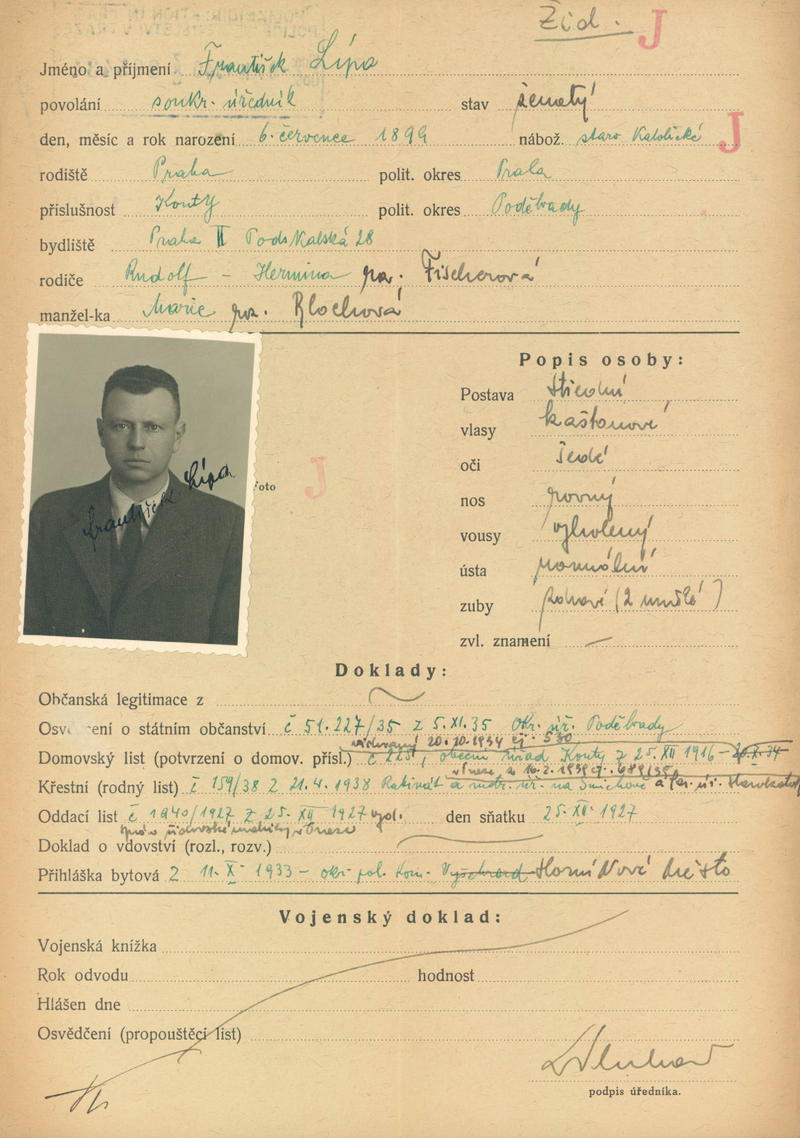 Žid.
J
Jméno a příjmení František Lípa
povolání soukr. úředník stav ženatý
den, měsíc a rok narození 6. července 1899 nábož. staro Katolické J
rodiště Praha polit. okres Praha
příslušnost Kouty polit. okres Poděbrady
bydliště Praha II Podskalská 28
rodiče Rudolf – Hermina roz. Fischerová
manžel-ka Marie roz. Blochová
Popis osoby:
Postava střední
vlasy kaštanové
oči šedé
František Lípa
Foto
J
nos rovný
vousy vyholený
ústa normální
zuby (2 umělé)
zvl. znamení —
Doklady:
Občanská legitimace z
Osvědčení o státním občanství č 51.227/35 z 5.XI.35 Okr. úř. Poděbrady
20.10.1934 čj. 530
Domovský list (potvrzení o domov. přísl.) č 225, obecní úřad Kouty z 25.XII 1916 –
Křestní (rodný list) č 159/38 z 21.4.1938 Rabinát a matr. úř. na Smíchově
Oddací list č 1940/1927 z 25.XII 1927 den sňatku 25.XII.1927
Doklad o vdovství (rozl., rozv.)
Přihláška bytová z 11.X. 1933 – okr. pol. kom. Vyšehrad Horní Nové Město
Vojenský doklad:
Vojenská knížka
Rok odvodu hodnost
Hlášen dne
Osvědčení (propouštěcí list)
podpis úředníka.